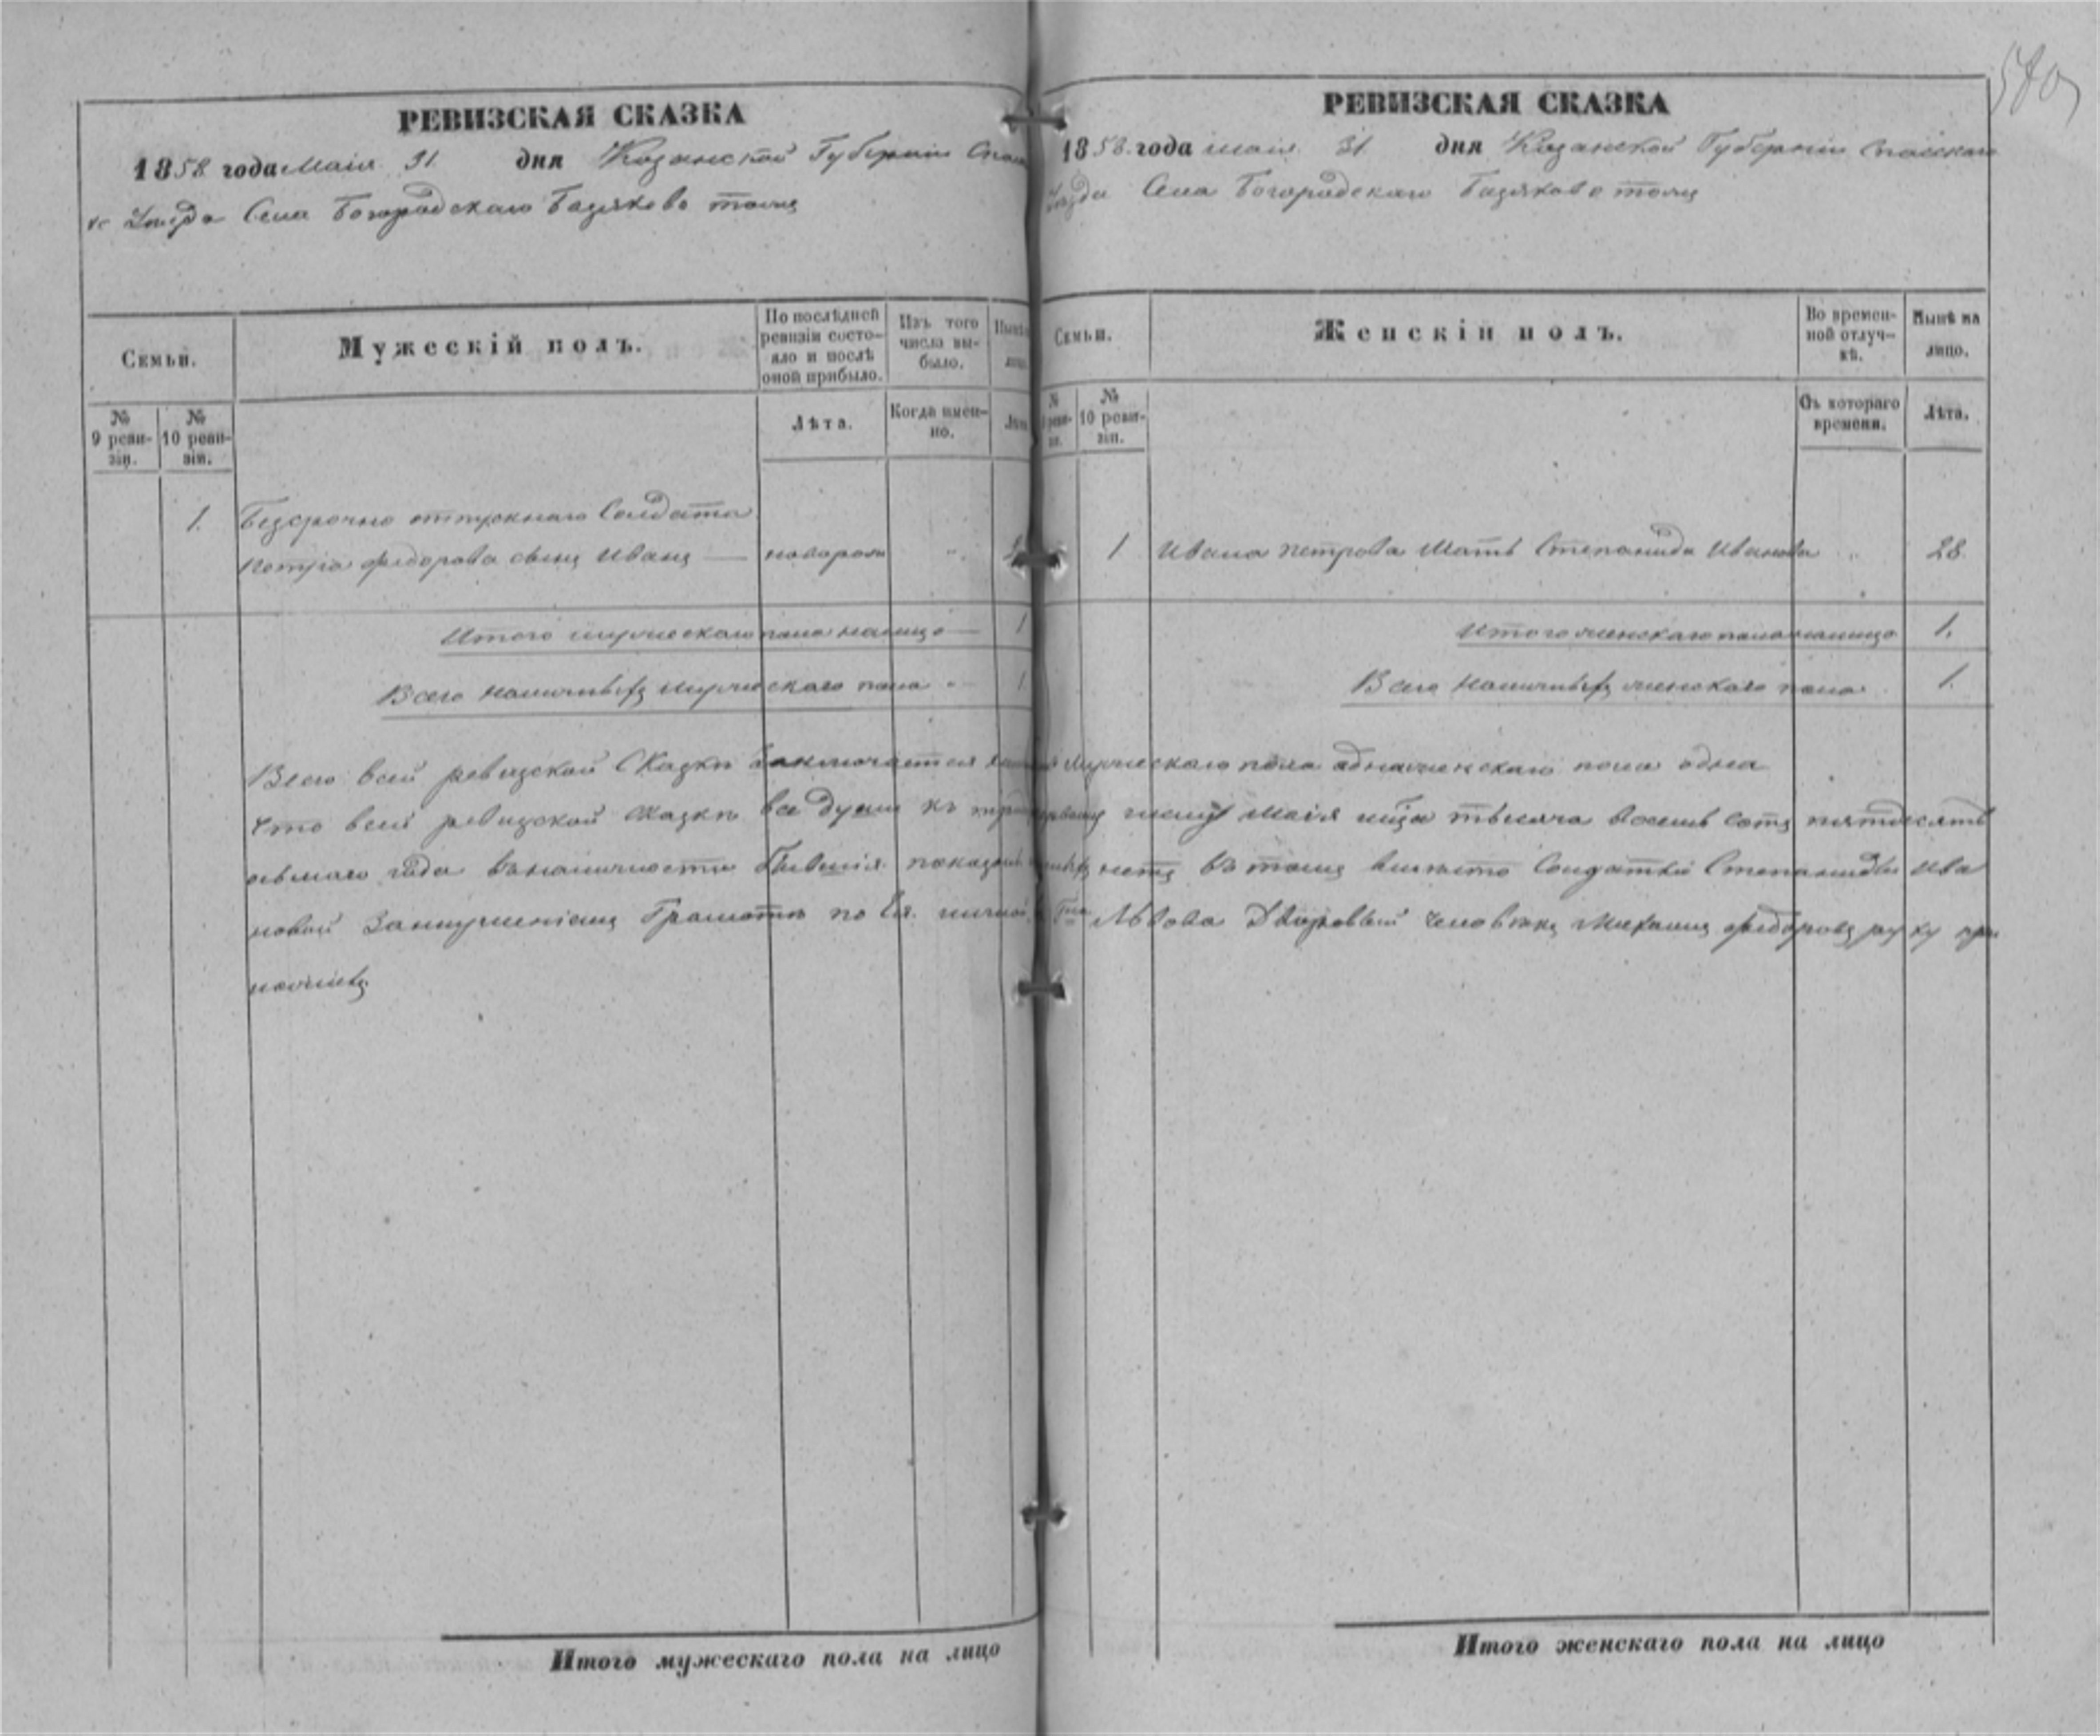 РЕВИЗСКАЯ СКАЗКА
1858 года Маія 31 дня Казанской Губерніи Спас
Уезда Села Богородскаго Базяково тожъ
Семьи.
Мужескій полъ.
По послѣдней ревизіи состо-
яло и послѣ
оной прибыло.
Изъ того
числа вы-
было.
№
9 реви-
зіи.
№
10 реви-
зіи.
Лѣта.
Когда имен-
но.
1. Безсрочно отпускнаго Солдата
Петра Федорова сынъ Иванъ — новорож
Итого мужескаго пола налицо — 1
Всего наличныхъ мужескаго пола - 1
РЕВИЗСКАЯ СКАЗКА
1858 года маія 31 дня Казанской Губерніи Спасскаго
Уезда Села Богородскаго Базяково тожъ
Семьи.
Женскій полъ.
Во времен-
ной отлуч-
кѣ.
Нынѣ на
лицо.
№
10 реви-
зіи.
Съ котораго
времени.
Лѣта.
1 Ивана Петрова Мать Степанида Иванова 28
Итого женскаго пола налицо 1.
Всего наличныхъ женскаго пола 1.
Всего всей ревизской Сказки Заключается мужескаго пола одна женскаго пола одна
Что всей ревизской сказки все души къ маія тысяча восемь сотъ пятдесятъ
осьмаго года въ наличности нетъ въ томъ вместо Солдатки Степаниды Ива
новой Грамоты по Ея личной Львова Дворовый человекъ Михаилъ Федоровъ руку при
ложилъ
Итого мужескаго пола на лицо
Итого женскаго пола на лицо